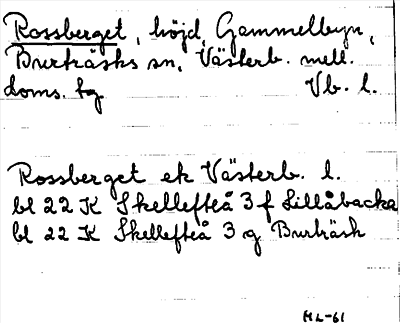 Rossberget, höjd, Gammelbyn,
Burträsks sn, Västerb. mell.
doms. tg Vb. l.
Rossberget ek Västerb. l.
bl 22 K Skellefteå 3 f Lillåbacka
bl 22 K Skellefteå 3 g Burträsk
HL-61